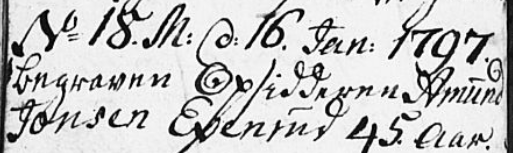 No 18. M: d: 16. Jan: 1797.
begraven Opsidderen Amund
Jonsen Epenrud 45. Aar.